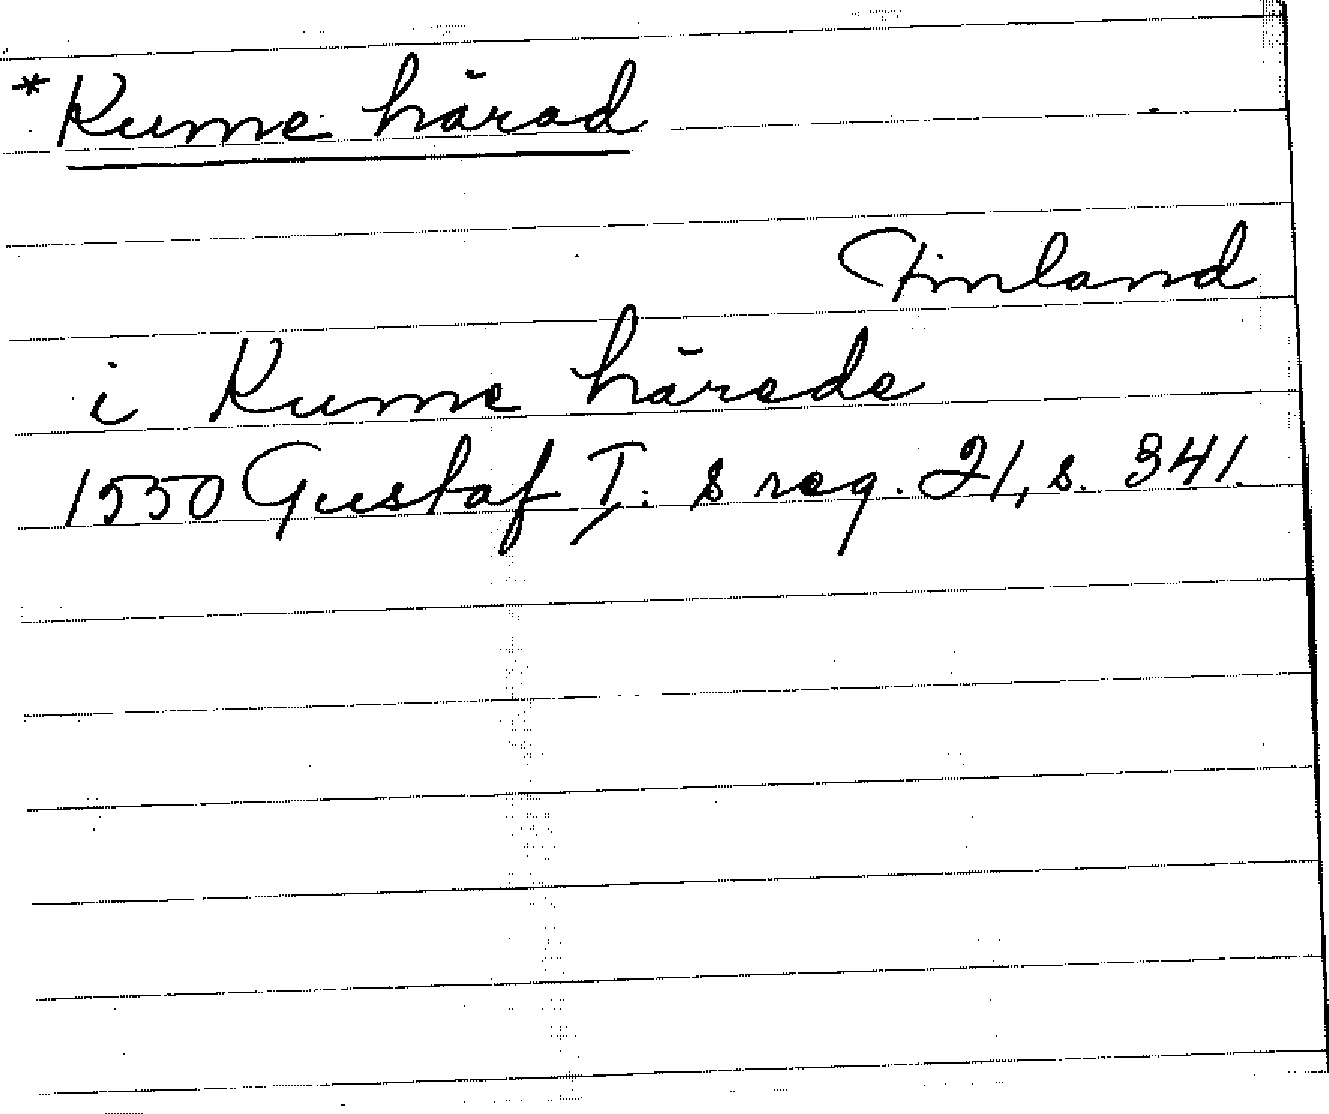 * Kume härad
Finland
i Kume härede
1550 Gustaf I:s reg. 21, s. 341.